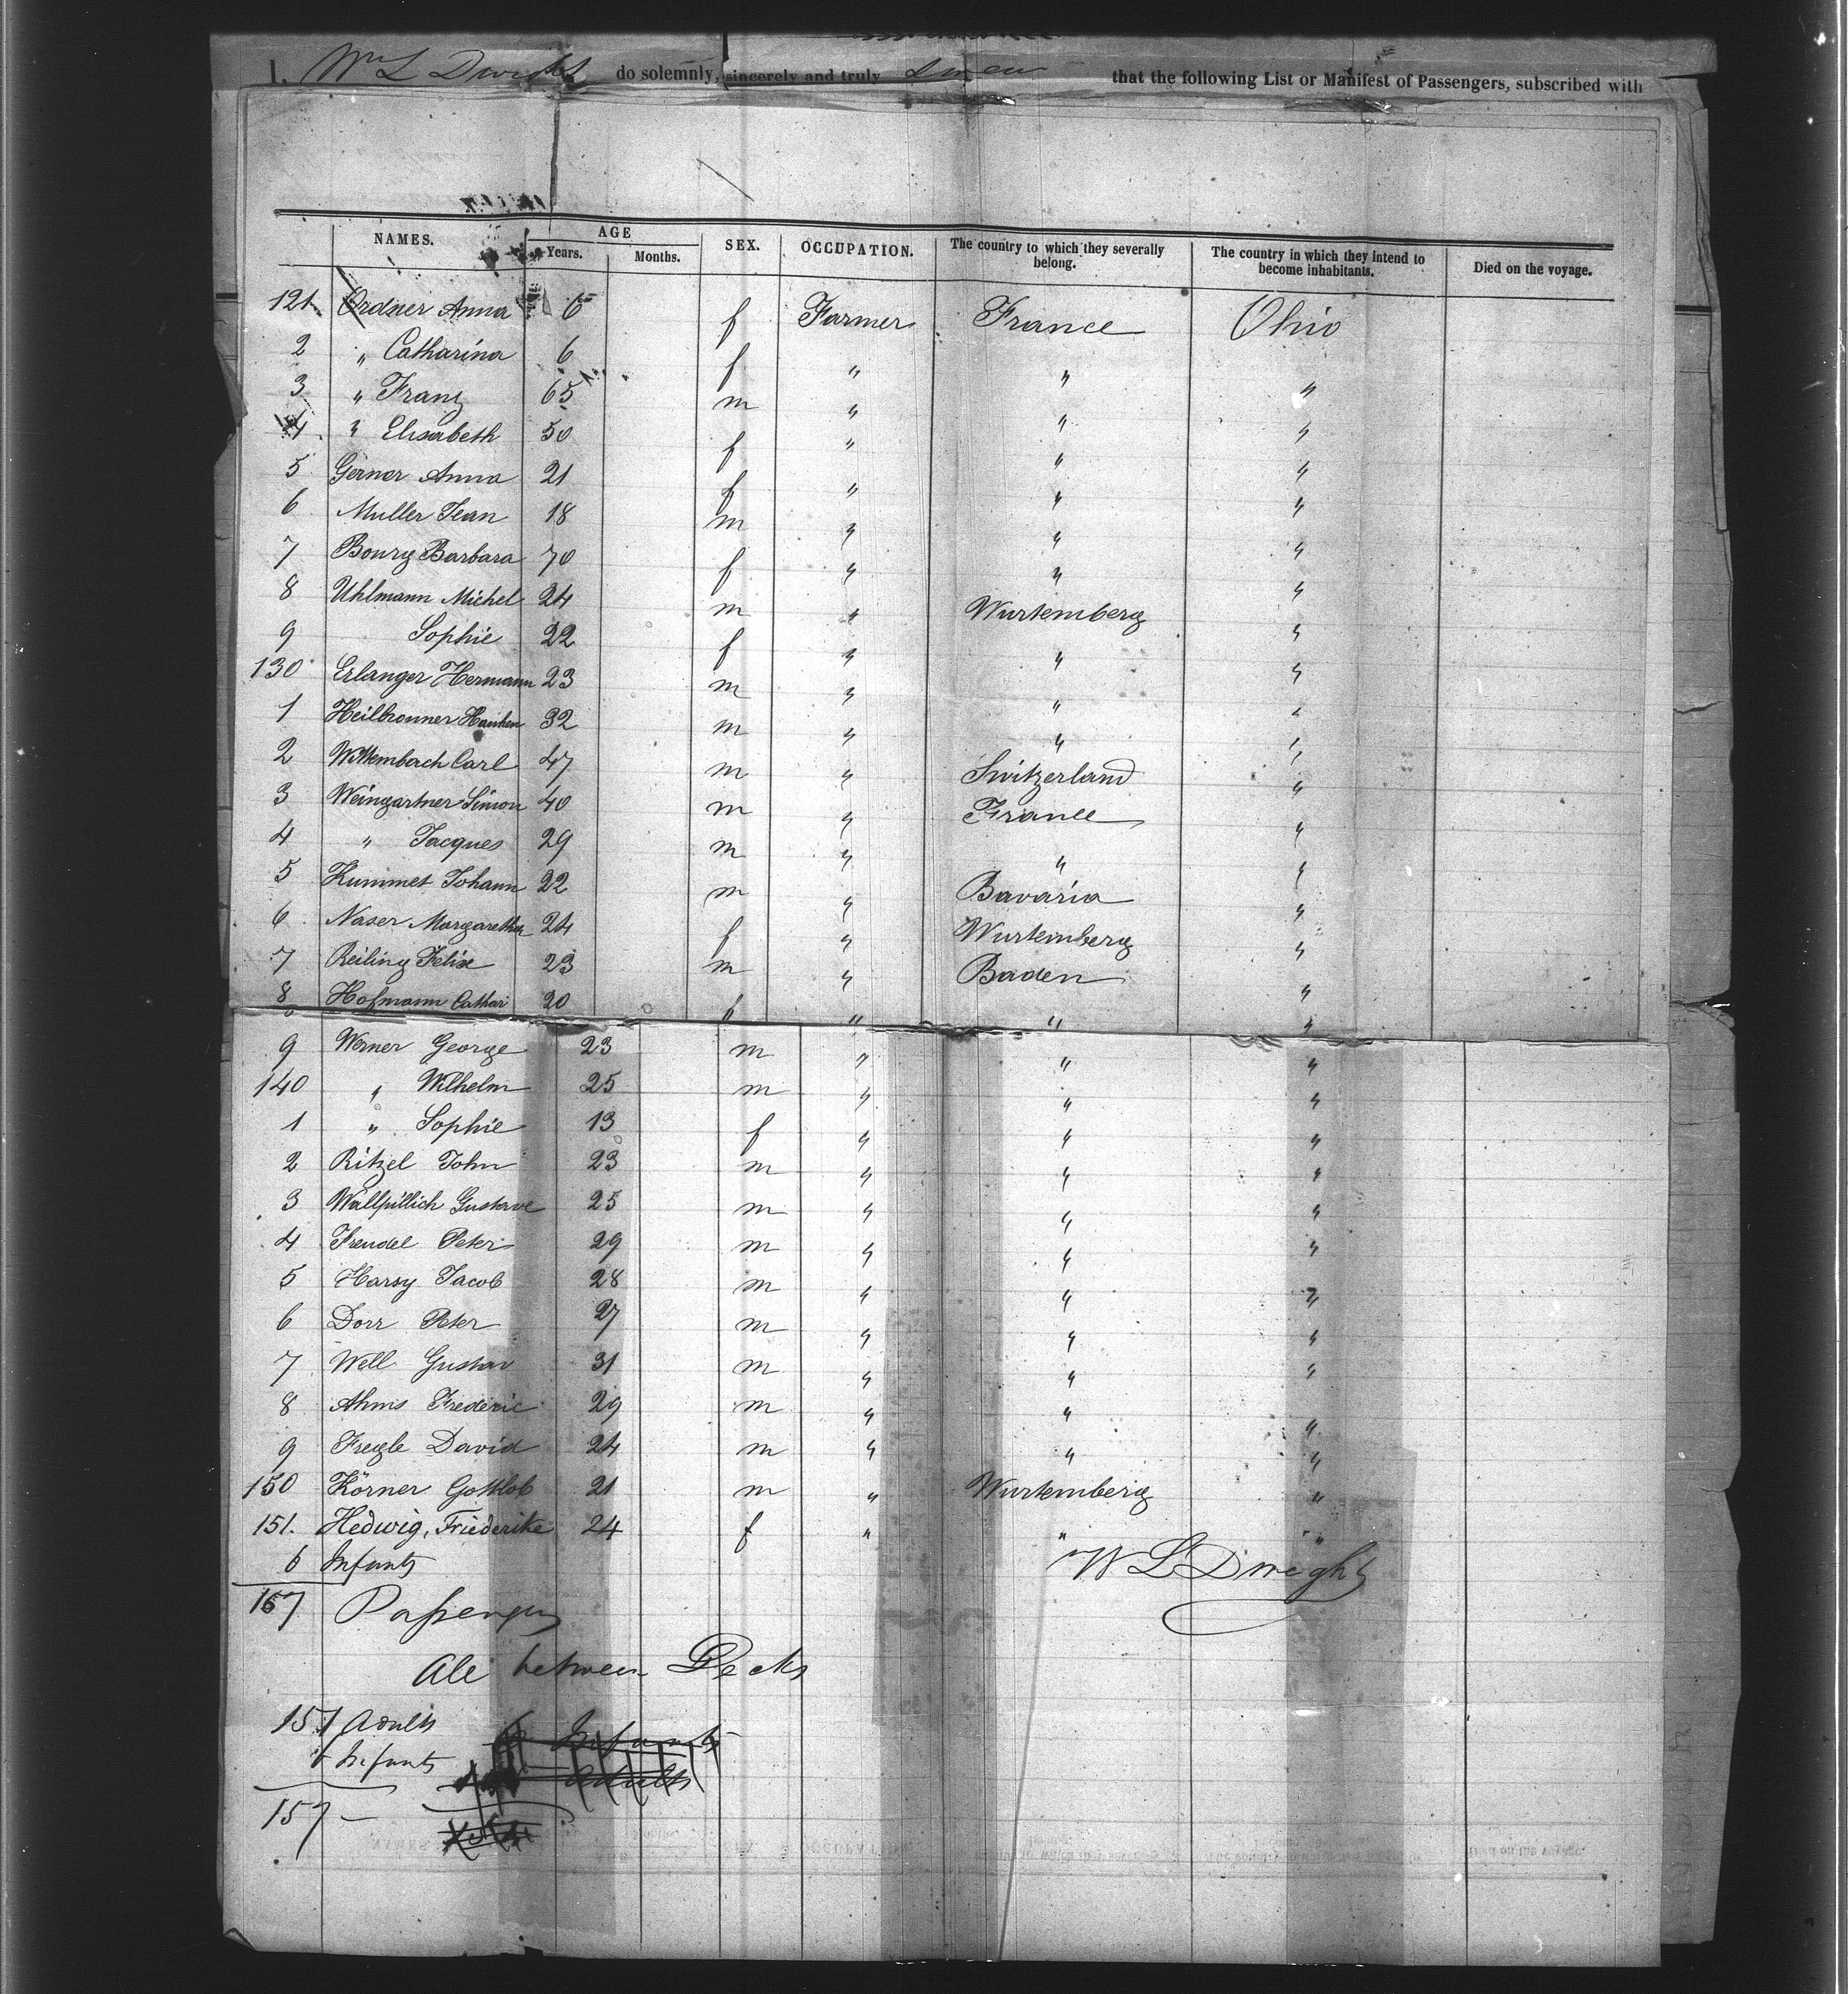 I. Wm L Dwight do solemnly, sincerely and truly swear that the following List or Manifest of Passengers, subscribed with
NAMES. AGE Years. Months. SEX. OCCUPATION. The country to which they severally belong. The country in which they intend to become inhabitants. Died on the voyage.
121 Ordner Anna 6 f Farmer France Ohio
2 " Catharina 6 f " " "
3 " Franz 65 m " " "
4 " Elisabeth 50 f " " "
5 Gerner Anna 21 f " " "
6 Muller Jean 18 m " " "
7 Boury Barbara 70 f " " "
8 Uhlmann Michel 24 m " Wurtemberg "
9 Sophie 22 f " " "
130 Erlanger Hermann 23 m " " "
1 Heilbronner 32 m " " "
2 Wittembach Carl 47 m " Switzerland "
3 Weingartner Simon 40 m " France "
4 " Jacques 29 m " " "
5 Kummet Johann 22 m " Bavaria "
6 Naser Margaretha 24 f " Wurtemberg "
7 Reiling Felix 23 m " Baden "
8 Hofmann Cathar 20 f " " "
9 Werner George 23 m " " "
140 " Wilhelm 25 m " " "
1 " Sophie 13 f " " "
2 Ritzel John 23 m " " "
3 Wallpillich Gustave 25 m " " "
4 Freudel Peter 29 m " " "
5 Harsy Jacob 28 m " " "
6 Dorr Peter 27 m " " "
7 Well Gustav 31 m " " "
8 Ahms Frederic 29 m " " "
9 Fregle David 24 m " " "
150 Körner Gottlob 21 m " Wurtemberg "
151. Hedwig, Friederike 24 f " " "
6 Infants W L Dwight
157 Passengers
All between Decks
151 Adults
6 Infants
157 —
Infants
Adults